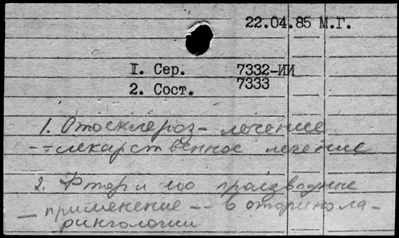 22.04.85 М.Г.
I. Сер. 7332-ИИ
2. Сост. 7333
1. Отосклероз - лечение
-- лекарственное лечение
2. Фтор и его производные
— применение -- в оторинола-
рингологии